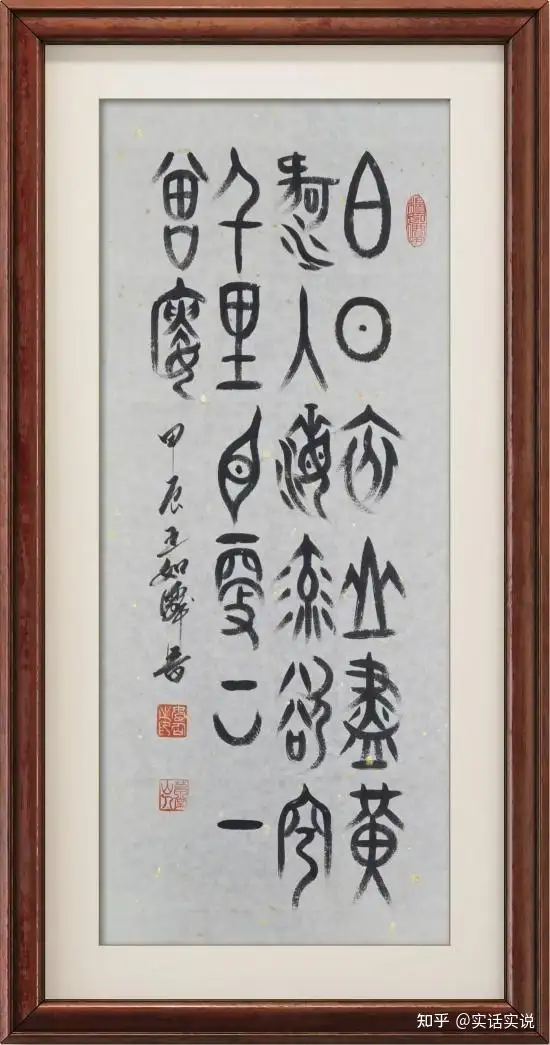 白日依山盡黄
河入海流欲窮
千里目更上一
層樓 甲辰王如書
知乎 @实话实说